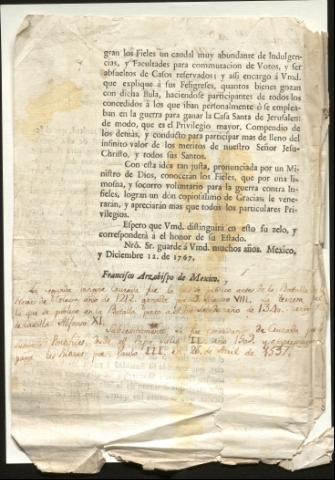 gran los Fieles un caudal muy abundante de Indulgen-
cias, y Facultades para commutacion de Votos, y ser
absueltos de Casos reservados: y asi encargo à Vmd.
que explique à sus Feligreses, quantos bienes gozan
con dicha Bula, haciendose participantes de todos los
concedidos à los que iban personalmente ò se emplea-
ban en la guerra para ganar la Casa Santa de Jerusalen:
de modo, que es el Privilegio mayor, Compendio de
los demàs, y conducto para participar mas de lleno del
infinito valor de los meritos de nuestro Señor Jesu-
Christo, y todos sus Santos.
Con esta idèa tan justa, pronunciada por un Mi-
nistro de Dios, conoceràn los Fieles, que por una li-
mosna, y socorro voluntario para la guerra contra In-
fieles, logran un dòn copiosisimo de Gracias: le vene-
raràn, y apreciaràn mas que todos los particulares Pri-
vilegios.
Espero que Vmd. distinguirà en esto su zelo, y
corresponderà à el honor de su Estado.
Nrô. Sr. guarde à Vmd. muchos años. Mexico,
y Diciembre 12. de 1767.
Francisco Arzobispo de Mexico.
La segunda insigne Cruzada fue la que se publicó antes de la Batalla
año de 1212. VIII. La tercera fue
la que se publicó en la Batalla año de 1340.
de Castilla Alfonso XI.
Subsecuentemente se han concedido de Cruzada por
Pontifices, desde el Papa Julio II. año 1509
para las Indias por Paulo III. en de Abril de 1537.